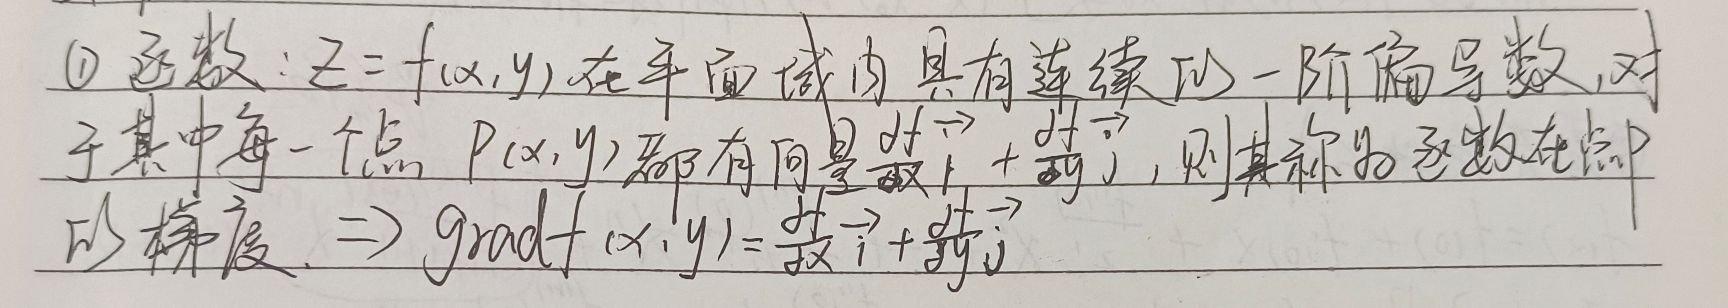 ① 函数：z=f(x,y)在平面域内具有连续的一阶偏导数,对
于其中每一个点 P(x,y)都有向量 ∂f/∂x i⃗ + ∂f/∂y j⃗ ,则其称为函数在点P
的梯度. ⇒ gradf(x,y)= ∂f/∂x i⃗ + ∂f/∂y j⃗